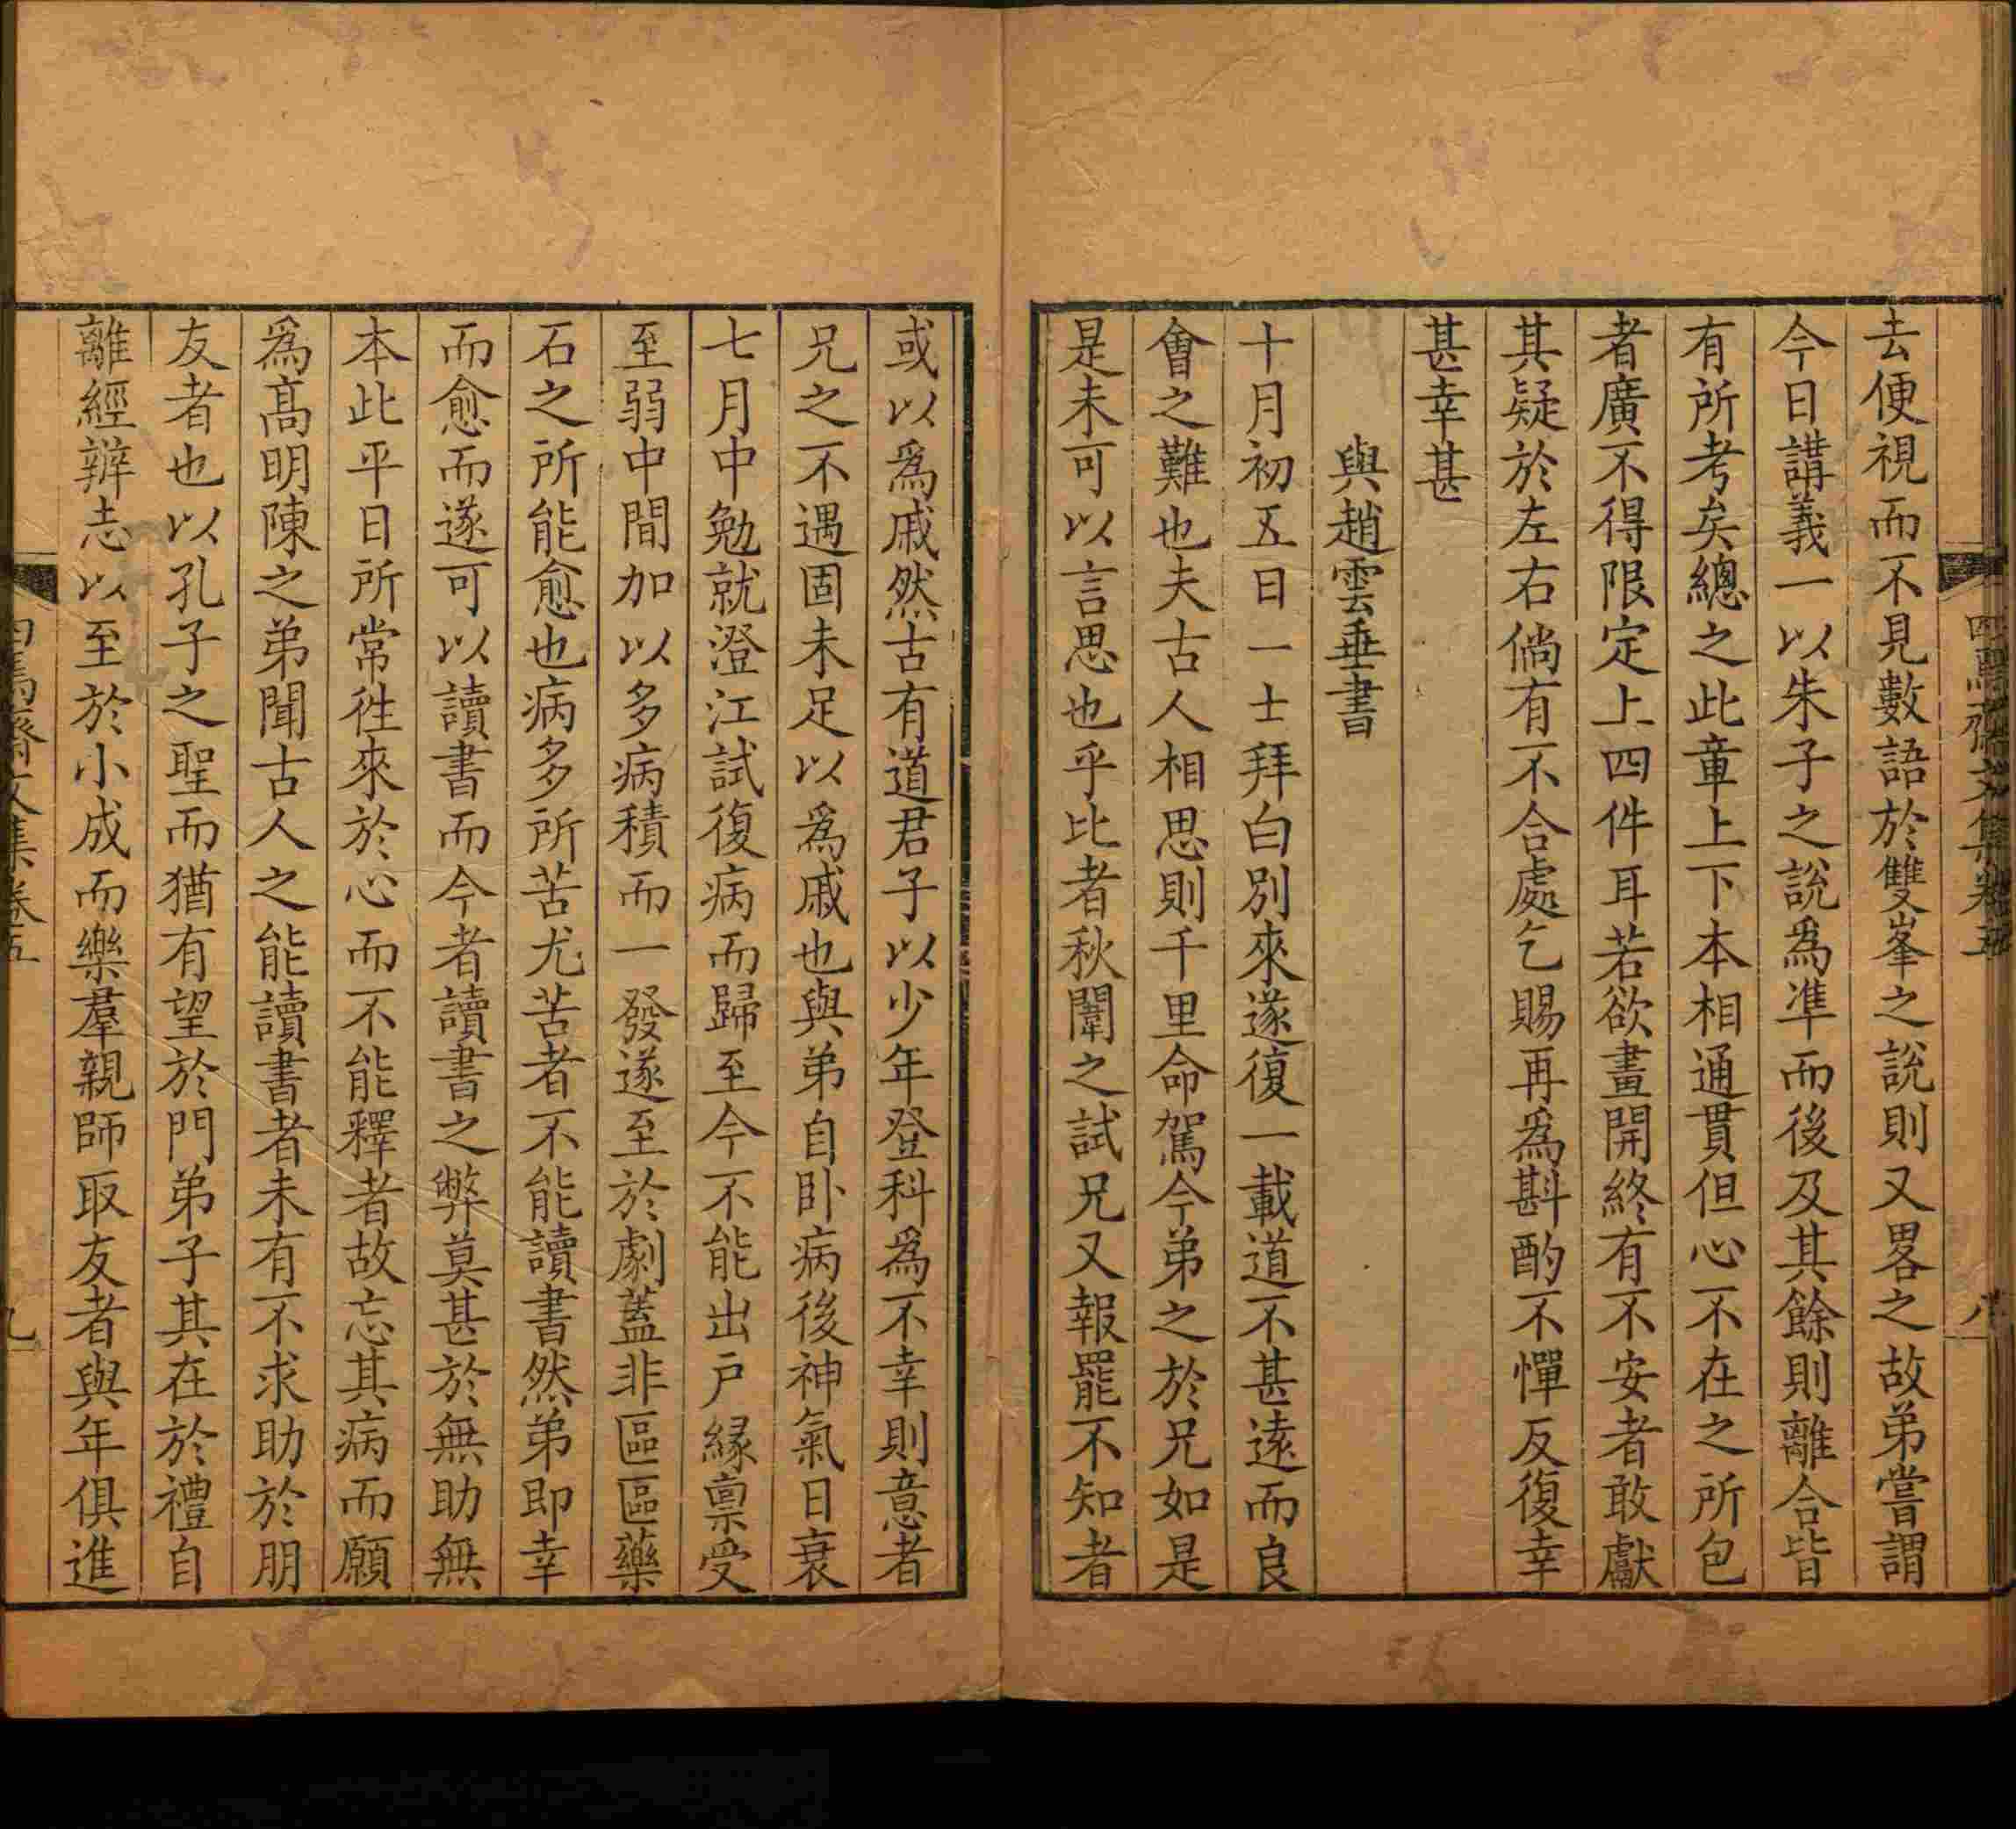 去便視而不見數語於雙峯之說則又畧之故弟嘗謂
今日講義一以朱子之說爲凖而後及其餘則離合皆
有所考矣總之此章上下本相通貫但心不在之所包
者廣不得限定上四件耳若欲畫開終有不安者敢獻
其疑於左右倘有不合處乞賜再爲斟酌不憚反復幸
甚幸甚
與趙雲垂書
十月初五日一士拜白別來遂復一載道不甚遠而良
會之難也夫古人相思則千里命駕今弟之於兄如是
是未可以言思也乎比者秋闈之試兄又報罷不知者
或以爲戚然古有道君子以少年登科爲不幸則意者
兄之不遇固未足以爲戚也與弟自卧病後神氣日衰
七月中勉就澄江試復病而歸至今不能出戶緣禀受
至弱中間加以多病積而一發遂至於劇蓋非區區藥
石之所能愈也病多所苦尤苦者不能讀書然弟即幸
而愈而遂可以讀書而今者讀書之弊莫甚於無助無
本此平日所常徃來於心而不能釋者故忘其病而願
爲高明陳之弟聞古人之能讀書者未有不求助於朋
友者也以孔子之聖而猶有望於門弟子其在於禮自
離經辨志以至於小成而樂羣親師取友者與年俱進